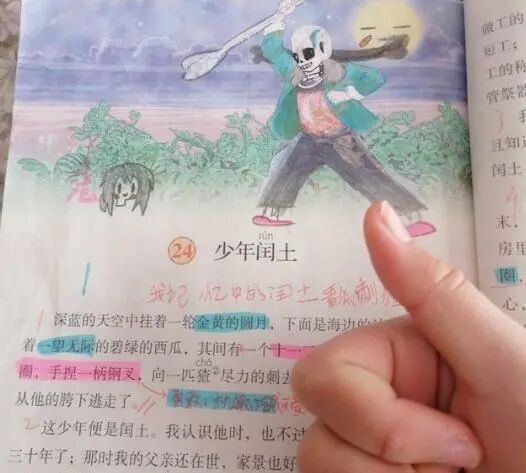 做工的
短工；
工的称
管祭器
且知道
闰土
末，
房里
圈，
心，
rùn
24 少年闰土
我记忆中的闰土
1 深蓝的天空中挂着一轮金黄的圆月，下面是海边的沙
着一望无际的碧绿的西瓜，其间有一个十一二
chá
圈，手捏一柄钢叉，向一匹猹②尽力的刺去
从他的胯下逃走了。
2 这少年便是闰土。我认识他时，也不过
三十年了；那时我的父亲还在世，家景也好